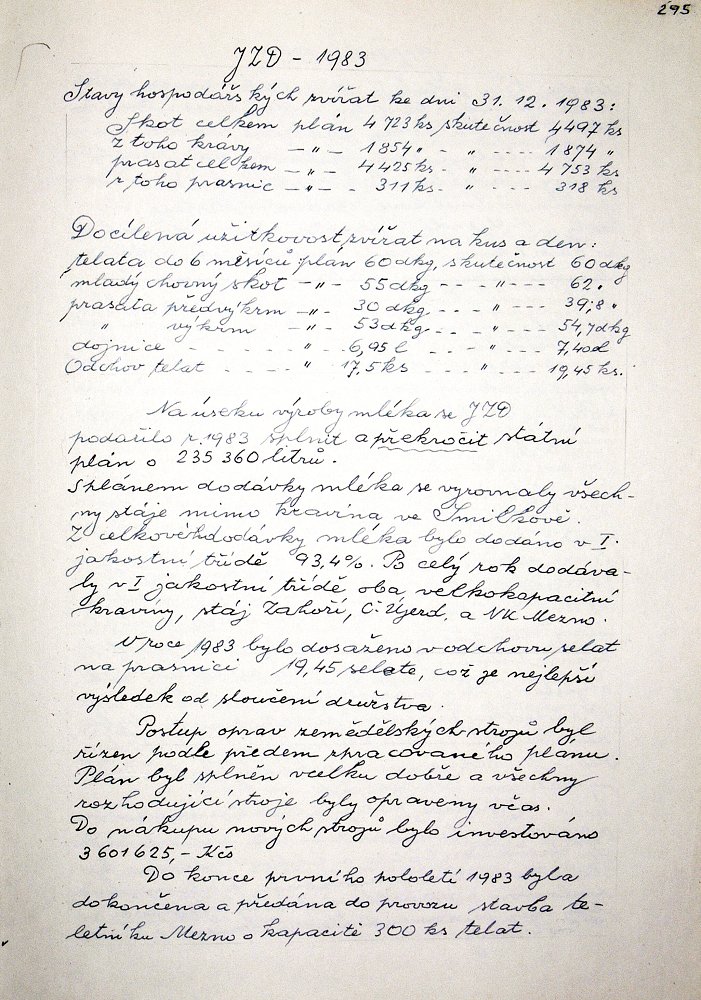 295
JZD - 1983
Stavy hospodářských zvířat ke dni 31. 12. 1983:
Skot celkem plán 4 723 ks skutečnost 4497 ks
z toho krávy - " - 1854 " - " - - - - 1874 "
prasat celkem - " - 4 425 ks - " - - - - 4 753 ks
z toho prasnic - " - - 311 ks - " - - - - 318 ks
Docílená užitkovost zvířat na kus a den:
telata do 6 měsíců plán 60 dkg, skutečnost 60 dkg
mladý chovný skot - " - 55 dkg - - - " - - - 62 "
prasata předvýkrm - " - 30 dkg - - - " - - - 39,8 "
" výkrm - " - 53 dkg - - - " - - - 54,7 dkg
dojnice - - - - - " - 6,95 l - - - " - - - 7,40 l
Odchov telat - - - - " - 17,5 ks - - - " - - - 19,45 ks.
Na úseku výroby mléka se JZD
podařilo r. 1983 splnit a překročit státní
plán o 235 360 litrů.
S plánem dodávky mléka se vyrovnaly všech-
ny stáje mimo kravína ve Smilkově.
Z celkového dodávky mléka bylo dodáno v I.
jakostní třídě 93,4%. Po celý rok dodáva-
ly v I jakostní třídě oba velkokapacitní
kravíny, stáj Zahoří, Č. Újezd. a VK Mezno.
V roce 1983 bylo dosaženo v odchovu selat
na prasnici 19,45 selete, což je nejlepší
výsledek od sloučení družstva.
Postup oprav zemědělských strojů byl
řízen podle předem zpracovaného plánu.
Plán byl splněn vcelku dobře a všechny
rozhodující stroje byly opraveny včas.
Do nákupu nových strojů bylo investováno
3 601 625,- Kčs
Do konce prvního pololetí 1983 byla
dokončena a předána do provozu stavba te-
letníku Mezno o kapacitě 300 ks telat.